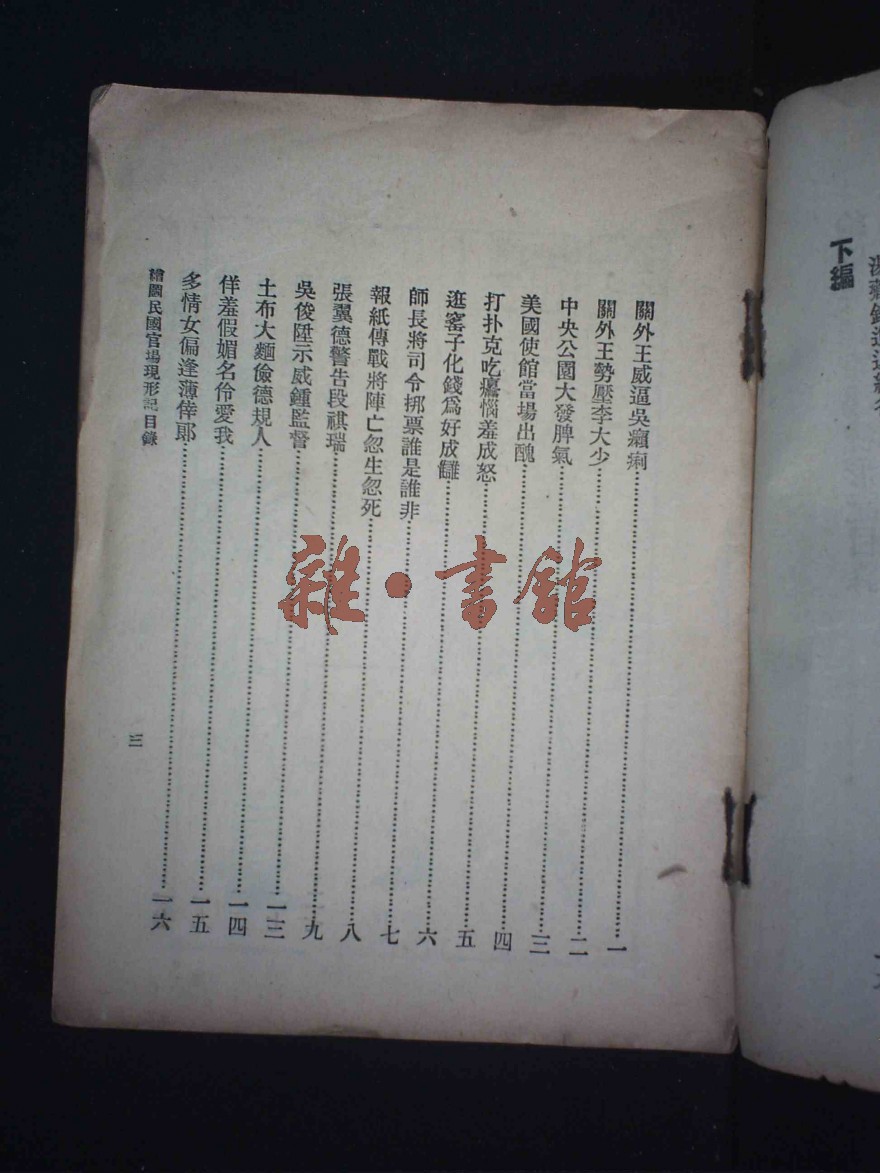 下編
關外王威逼吳癩痢……一
關外王勢壓李大少……二
中央公園大發脾氣……三
美國使館當場出醜……四
打扑克吃癟惱羞成怒……五
逛窰子化錢爲好成讎……六
師長將司令挷票誰是誰非……七
報紙傳戰將陣亡忽生忽死……八
張翼德警告段祺瑞……九
吳俊陞示威鍾監督……一三
土布大麵儉德規人……一四
佯羞假媚名伶愛我……一五
多情女偏逢薄倖郞……一六
繪圖民國官場現形記目錄
三
雜·書館